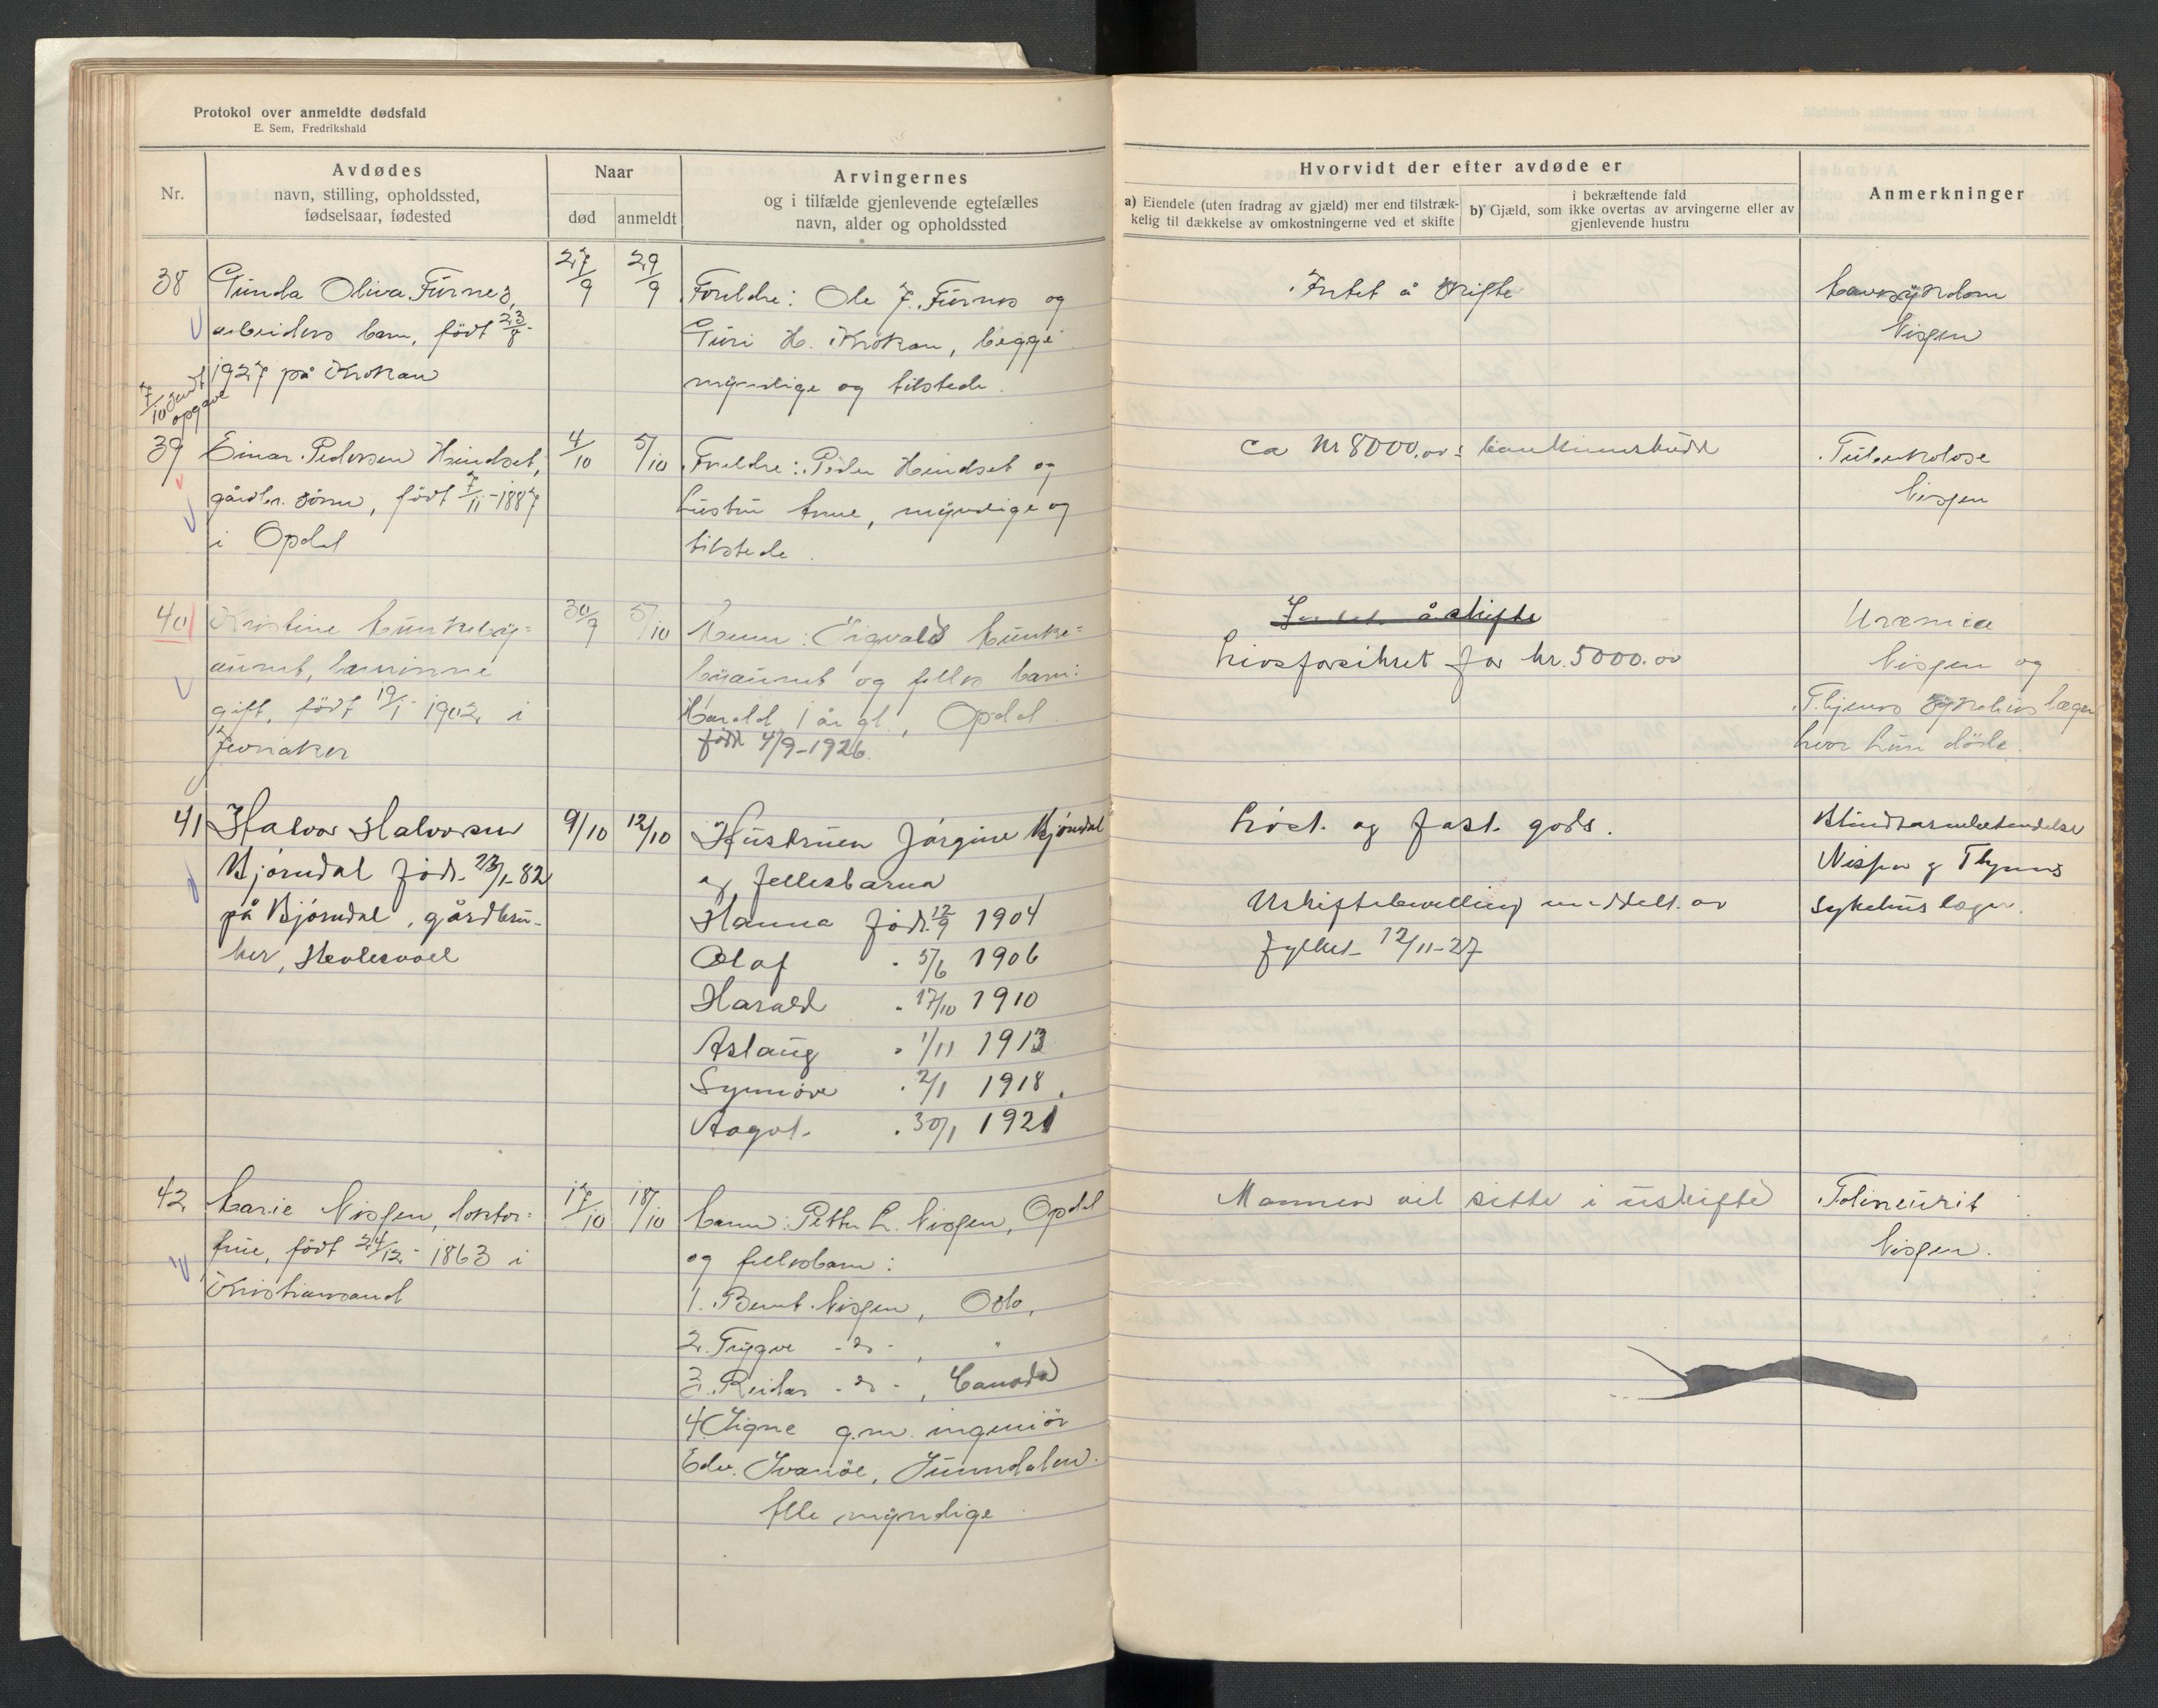 Protokol over anmeldte dødsfald
E. Sem, Fredrikshald
Nr.
Avdødes
navn, stilling, opholdssted,
fødselsaar, fødested
Naar
død
anmeldt
Arvingernes
og i tilfælde gjenlevende egtefælles
navn, alder og opholdssted
Hvorvidt der efter avdøde er
a) Eiendele (uten fradrag av gjæld) mer end tilstræk-
kelig til dækkelse av omkostningerne ved et skifte
i bekræftende fald
b) Gjæld, som ikke overtas av arvingerne eller av
gjenlevende hustru
Anmerkninger
38
Gunda Oliva Furnes,
arbeiders barn, født 23/8-
1927 på Krokan
7/10 sendt
opgave
27/9
29/9
Foreldre: Ole J. Furnes og
Guri H. Krokan, begge
myndige og tilstede.
Intet å skifte
Nissen
39
Einar Pedersen Hindset,
gårdbr. sønn, født 7/11-1887
i Opdal
4/10
5/10
Foreldre: Peder Hindset og
hustru Anne, myndige og
tilstede.
ca kr 8000.00
Tuberkolose
Nissen
40
Kristine
gift, født 19/1-1902 i
Jevnaker
30/9
5/10
Mann: Sigvald
og felles barn:
Harald 1 år gl., Opdal
født 4/9-1926.
Intet å skifte
Livsforsikret for kr. 5000.00
Uræmia
Nissen og
Thjems sykehus læger
hvor hun døde.
41
Halvor Halvorsen
Bjørndal født 23/1-82
på Bjørndal, gårdbru-
ker,
9/10
12/10
Hustruen Jørgine Bjørndal
og fellesbarna
Hanna født 12/9 1904
Olaf " 5/6 1906
Harald " 17/10 1910
Aslaug " 1/11 1913
Synnøve " 2/1 1918.
Aagot " 30/1 1921
Løst og fast gods.
Uskiftebevilling meddelt av
fylket 12/11-27
Blindtarmbetendelse
Nissen og Thjems
sykehus læger.
42
Marie Nissen, doktor-
frue, født 24/12-1863 i
Kristiansand
17/10
18/10
Mann: Petter L. Nissen, Opdal
og fellesbarn:
1. Bernt Nissen, Oslo,
2. Trygve -do-, "
3. Reidar -do-, Canada
4. Signe g.m. ingeniør
Edv. Svanøe, Sunndalen.
Alle myndige
Mannen vil sitte i uskifte
Polineurit
Nissen.